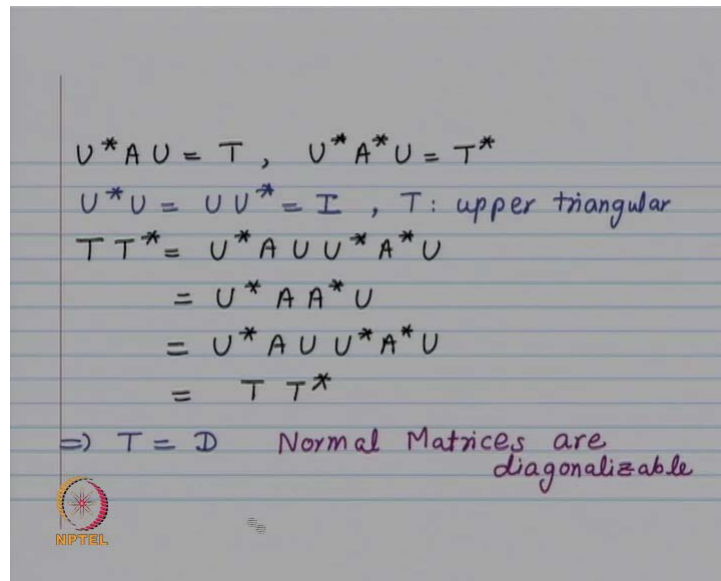 U* A U = T , U* A* U = T*
U* U = U U* = I , T : upper triangular
T T* = U* A U U* A* U
= U* A A* U
= U* A U U* A* U
= T T*
=> T = D Normal Matrices are
diagonalizable
NPTEL